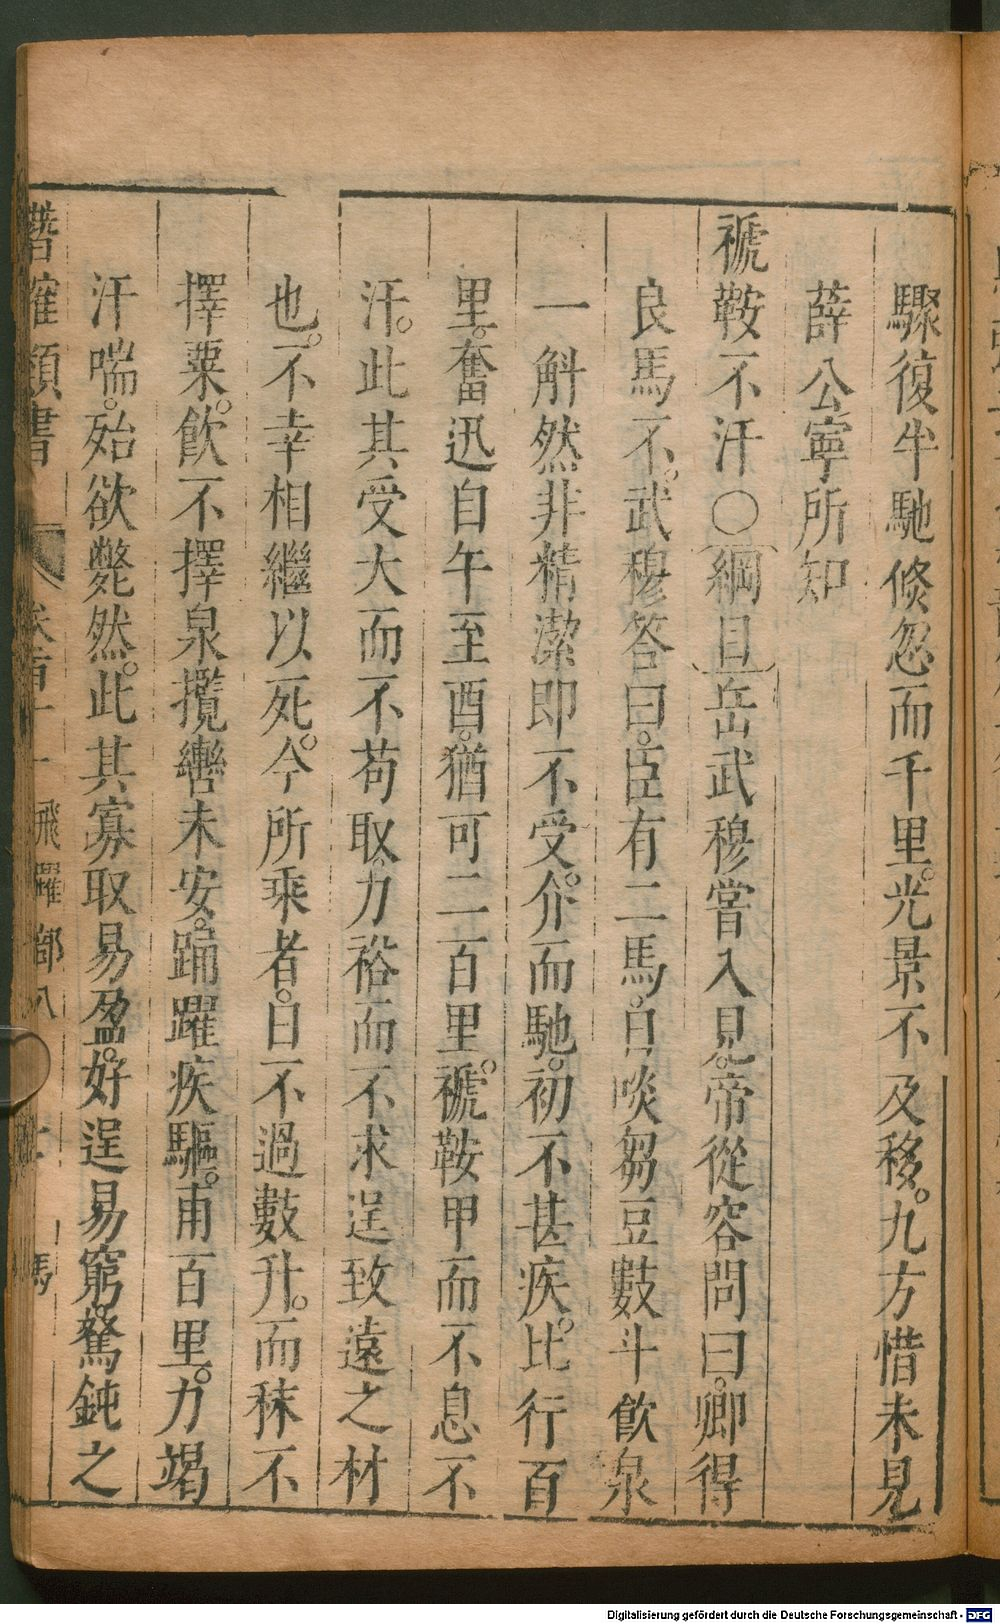 驟復牛馳倏忽而千里。光景不及移。九方惜未見
薛公寧所知
褫鞍不汗○綱目岳武穆嘗入見。帝從容問曰。卿得
良馬不。武穆答曰。臣有二馬。日啖芻豆數斗飲泉
一斛然非精潔即不受。介而馳。初不甚疾。比行百
里。奮迅自午至酉。猶可二百里。褫鞍甲而不息不
汗。此其受大而不苟取。力裕而不求逞致遠之材
也。不幸相繼以死。今所乘者。日不過數升。而秣不
擇粟。飲不擇泉攬轡未安。踊躍疾驅。甫百里。力竭
汗喘。殆欲斃然。此其寡取易盈。好逞易窮。駑鈍之
類書
飛躍部八
馬
Digitalisierung gefördert durch die Deutsche Forschungsgemeinschaft - DFG